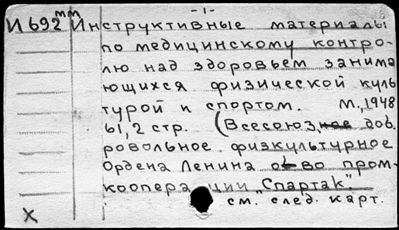 -1-
И 692 мм Инструктивные материалы
по медицинскому контро-
лю над здоровьем занима
ющихся физической куль
турой и спортом. М., 1948
61, 2 стр. (Всесоюз.ное доб.
ровольное физкультурное
Ордена Ленина о-во пром-
коопера ции „Спартак".
см. след. карт.
X